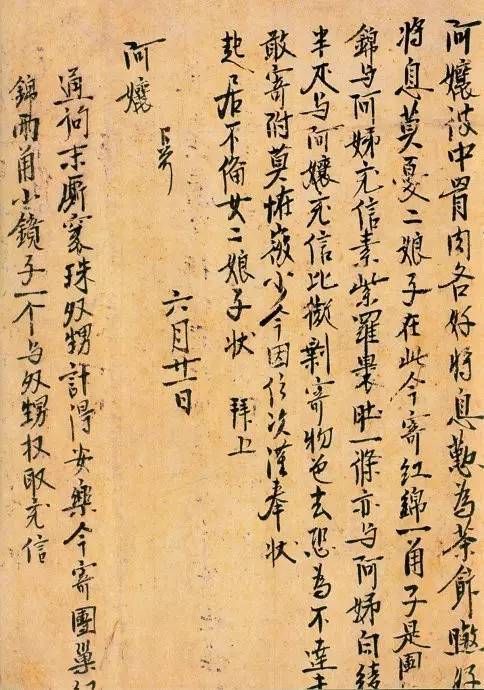 阿孃彼中骨肉各好將息勤為茶飰好
將息莫憂二娘子在此今寄紅錦一角子是團
錦与阿姊充信素紫羅裹肚一條亦与阿姊白綾
半疋与阿孃充信比擬剩寄物色去恐為不達未
敢寄附莫怪微少今因信次謹奉狀
起居不俻女二娘子狀 拜上
六月廿一日
阿孃 几前
通詢末厮褭珠外甥計得安樂今寄團巢紅
錦兩角小鏡子一个与外甥收取充信